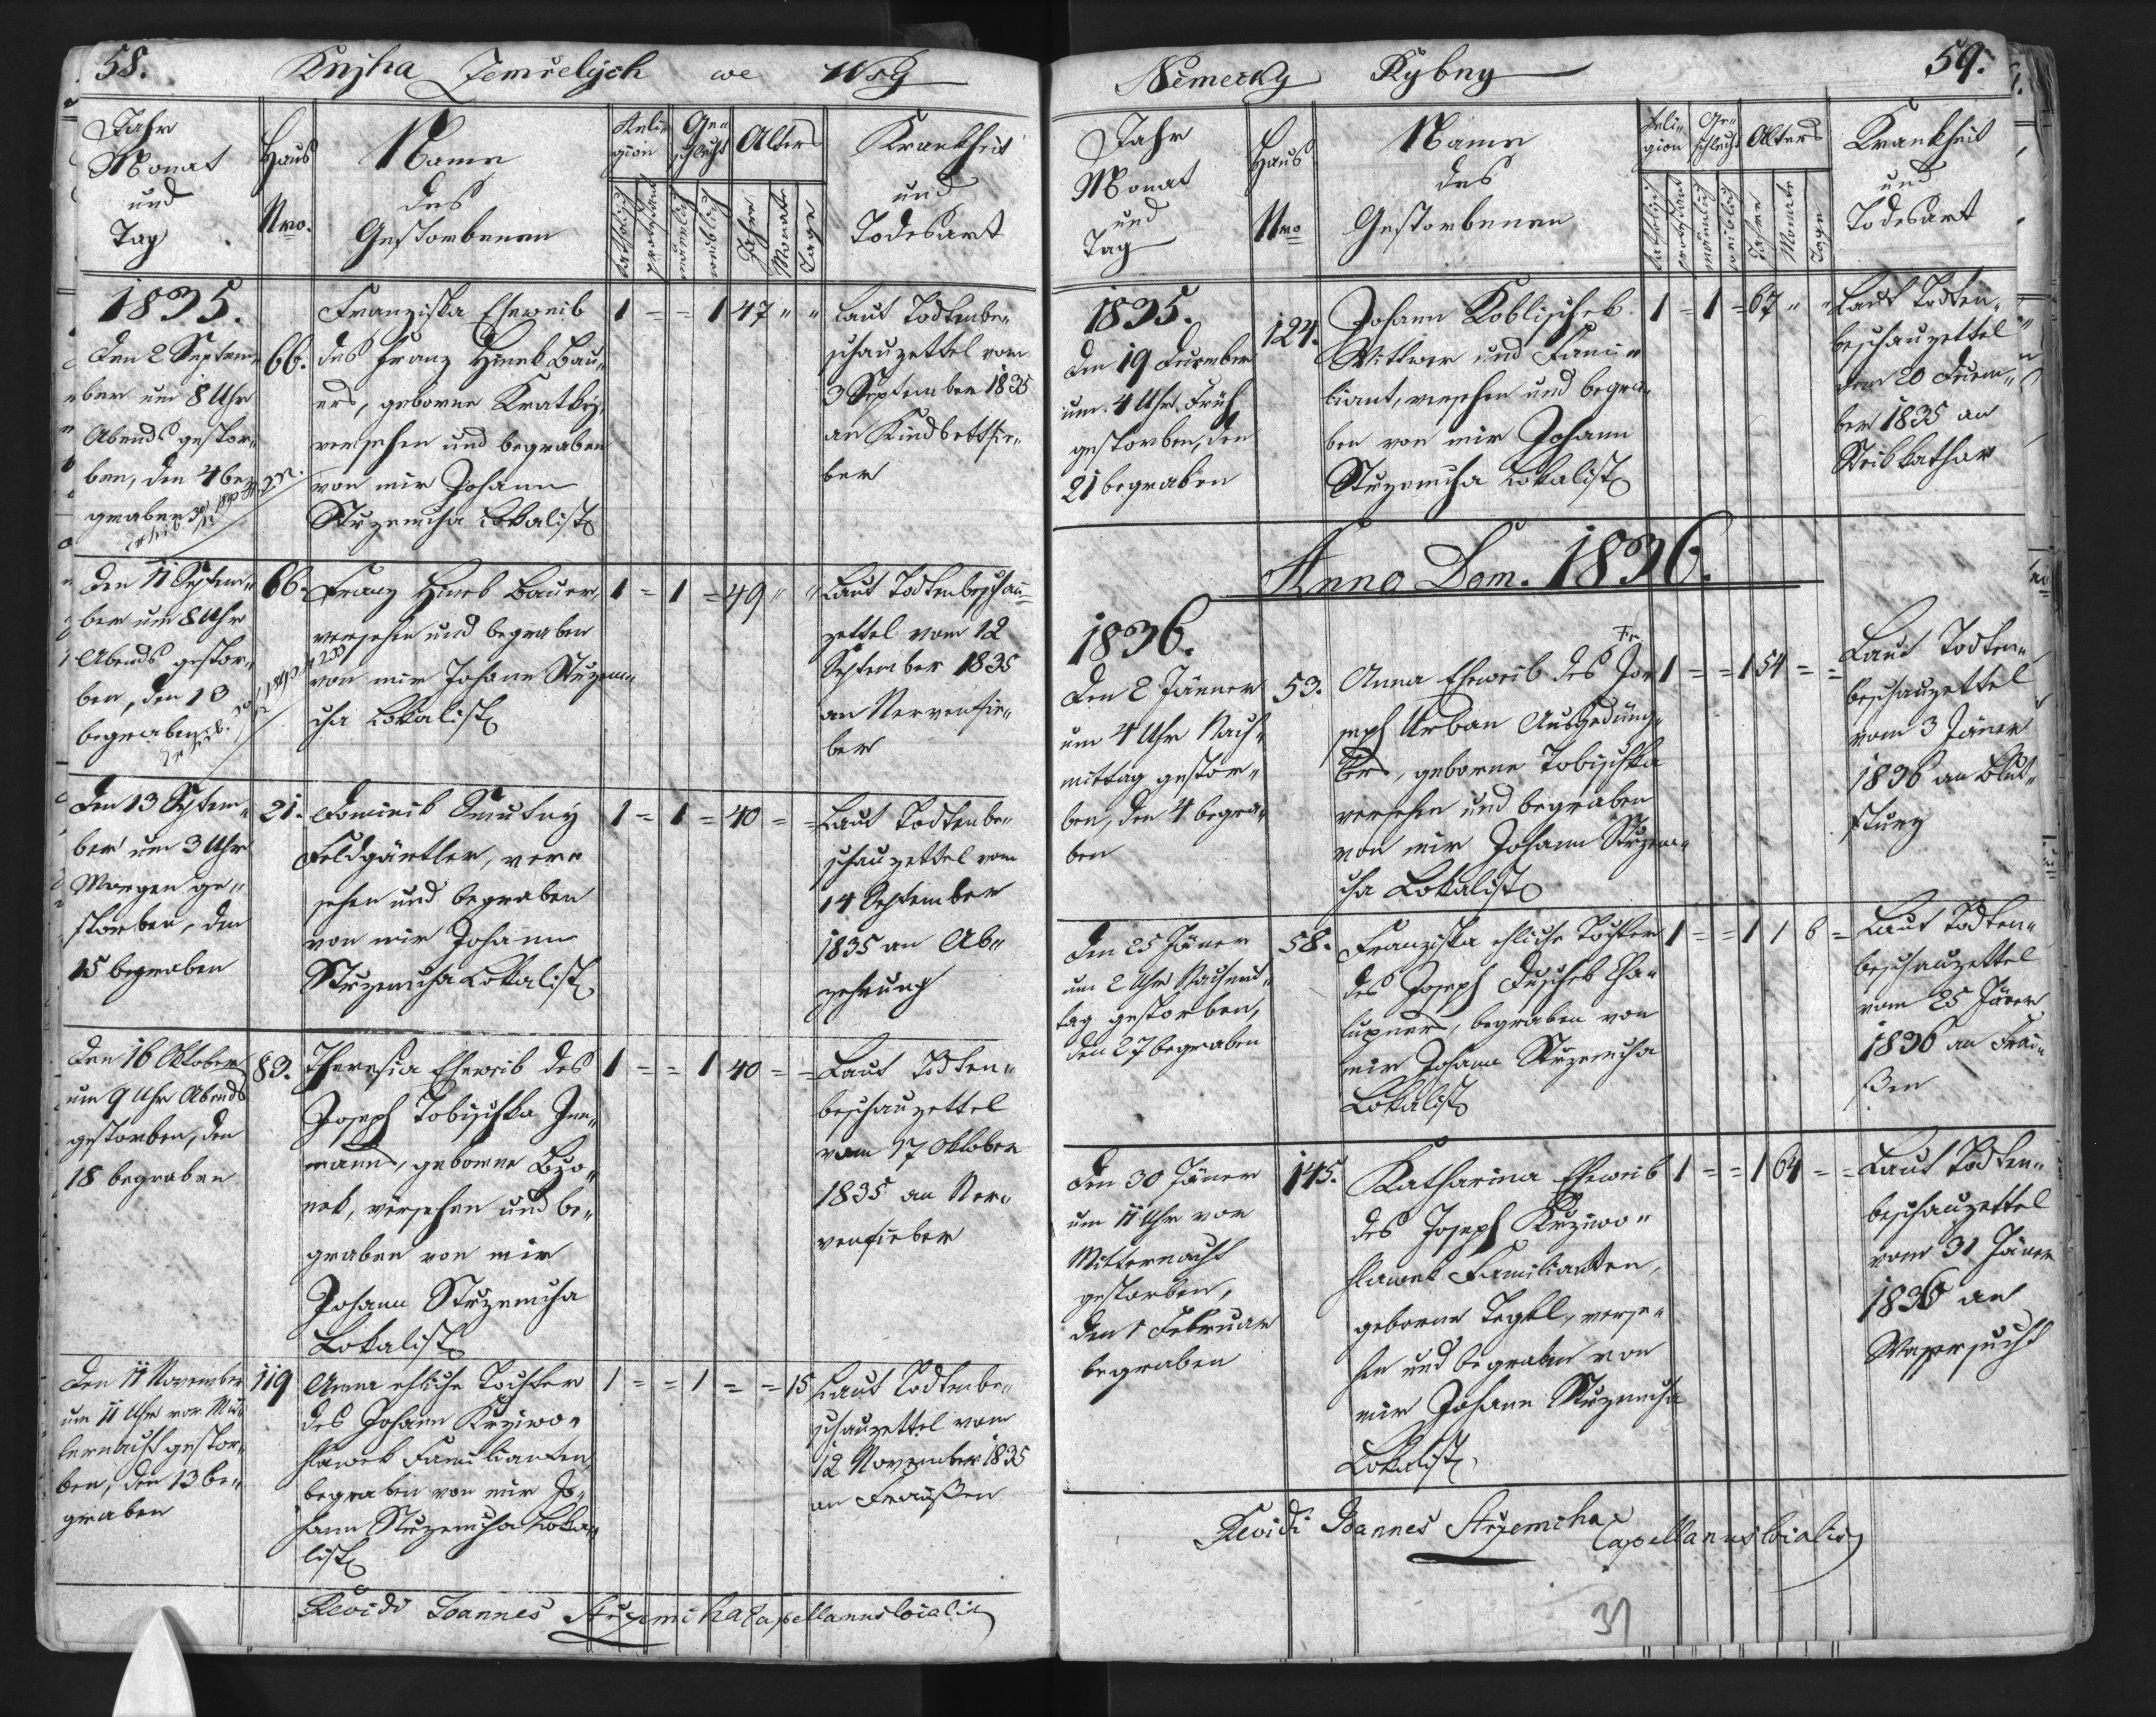 58.
Knjha Zemřelých we Wsy
Jahr
Monat
und
Tag
Haus
Nro.
Name
des
Gestorbenen
Reli-
gion
katholisch
protestant
Ge-
schlecht
männlich
weiblich
Alters
Jahre
Monate
Tage
Krankheit
und
Todesart
1835.
Den 2 Septem„
ber um 8 Uhr
Abends gestor„
ben, den 4 be„
graben
66.
Franziska Eheweib
des Franz Hineb Bau„
ers, geborne Kratky,
versehen und begraben
von mir Johann
Strzemcha Lokalist
1 = = 1 47 " "
Laut Todtenbe„
schauzettel vom
3 September 1835
an Kindbettfie„
ber
Den 11 Septem„
ber um 8 Uhr
Abends gestor„
ben, den 13
begraben
66.
Franz Hineb Bauer,
versehen und begraben
von mir Johann Strzem„
cha Lokalist
1 = 1 = 49 " "
Laut Todtenbeschau„
zettel vom 12
September 1835
an Nervenfie„
ber
Den 13 Septem„
ber um 3 Uhr
Morgen ge„
storben, den
15 begraben
21.
Dominik Smutny
Feldgärtler, ver„
sehen und begraben
von mir Johann
Strzemcha Lokalist
1 = 1 = 40 = =
Laut Todtenbe„
schauzettel vom
14 September
1835 an Ab„
zehrung
Den 16 Oktober
um 9 Uhr Abends
gestorben, den
18 begraben
83.
Theresia Eheweib des
Joseph Tobischka Inn„
manns, geborne
versehen und be„
graben von mir
Johann Strzemcha
Lokalist
1 = = 1 40 = =
Laut Todten„
beschauzettel
vom 17 Oktober
1835 an Ner„
venfieber
Den 11 November
um 11 Uhr vor Mit„
ternacht gestor„
ben, den 13 be„
graben
119
Anna ehliche Tochter
des Johann Krziwo„
hlawek Familianten
begraben von mir Jo„
hann Strzemcha Loka„
list
1 = = 1 = = 15
Laut Todtenbe„
schauzettel vom
12 November 1835
an Fraißen
Revidi Joannes Strzemcha Capellanus localis
Německy Rybny
59.
Jahr
Monat
und
Tag
Haus
Nro
Name
des
Gestorbenen
Reli-
gion
katholisch
protestant
Ge-
schlecht
männlich
weiblich
Alters
Jahre
Monate
Tage
Krankheit
und
Todesart
1835.
Den 19 Dezember
um 4 Uhr Früh
gestorben, den
21 begraben
124.
Johann Koblischek
Wittwer und Fami„
liant, versehen und begra„
ben von mir Johann
Strzemcha Lokalist
1 = 1 = 67 " "
Laut Todten„
beschauzettel
vom 20 Dezem„
ber 1835 an
Stikkathar
Anno Dom. 1836.
1836.
Den 2 Jänner
um 4 Uhr Nach„
mittag gestor„
ben, den 4 begra„
ben
53.
Anna Eheweib des Jo„
seph Urban Ausgeding„
ers, geborne Tobischka
versehen und begraben
von mir Johann Strzem„
cha Lokalist
1 = = 1 54 = =
Laut Todten„
beschauzettel
vom 3 Jäner
1836 an Blut„
sturz
Den 25 Jäner
um 2 Uhr Nachmit„
tag gestorben,
den 27 begraben
58.
Franziska ehliche Tochter
des Joseph Duschek Cha„
lupners, begraben von
mir Johann Strzemcha
Lokalist
1 = = 1 1 6 =
Laut Todten„
beschauzettel
vom 25 Jäner
1836 an Frai„
ßen
Den 30 Jäner
um 11 Uhr vor
Mitternacht
gestorben,
den 1 Februar
begraben
145.
Katharina Eheweib
des Joseph Krziwo„
hlawek Familianten,
geborne Tegkl, verse„
hen und begraben von
mir Johann Strzemcha
Lokalist
1 = = 1 64 = =
Laut Todten„
beschauzettel
vom 31 Jäner
1836 an
Wassersucht
Revidi Joannes Strzemcha Capellanus localis
31